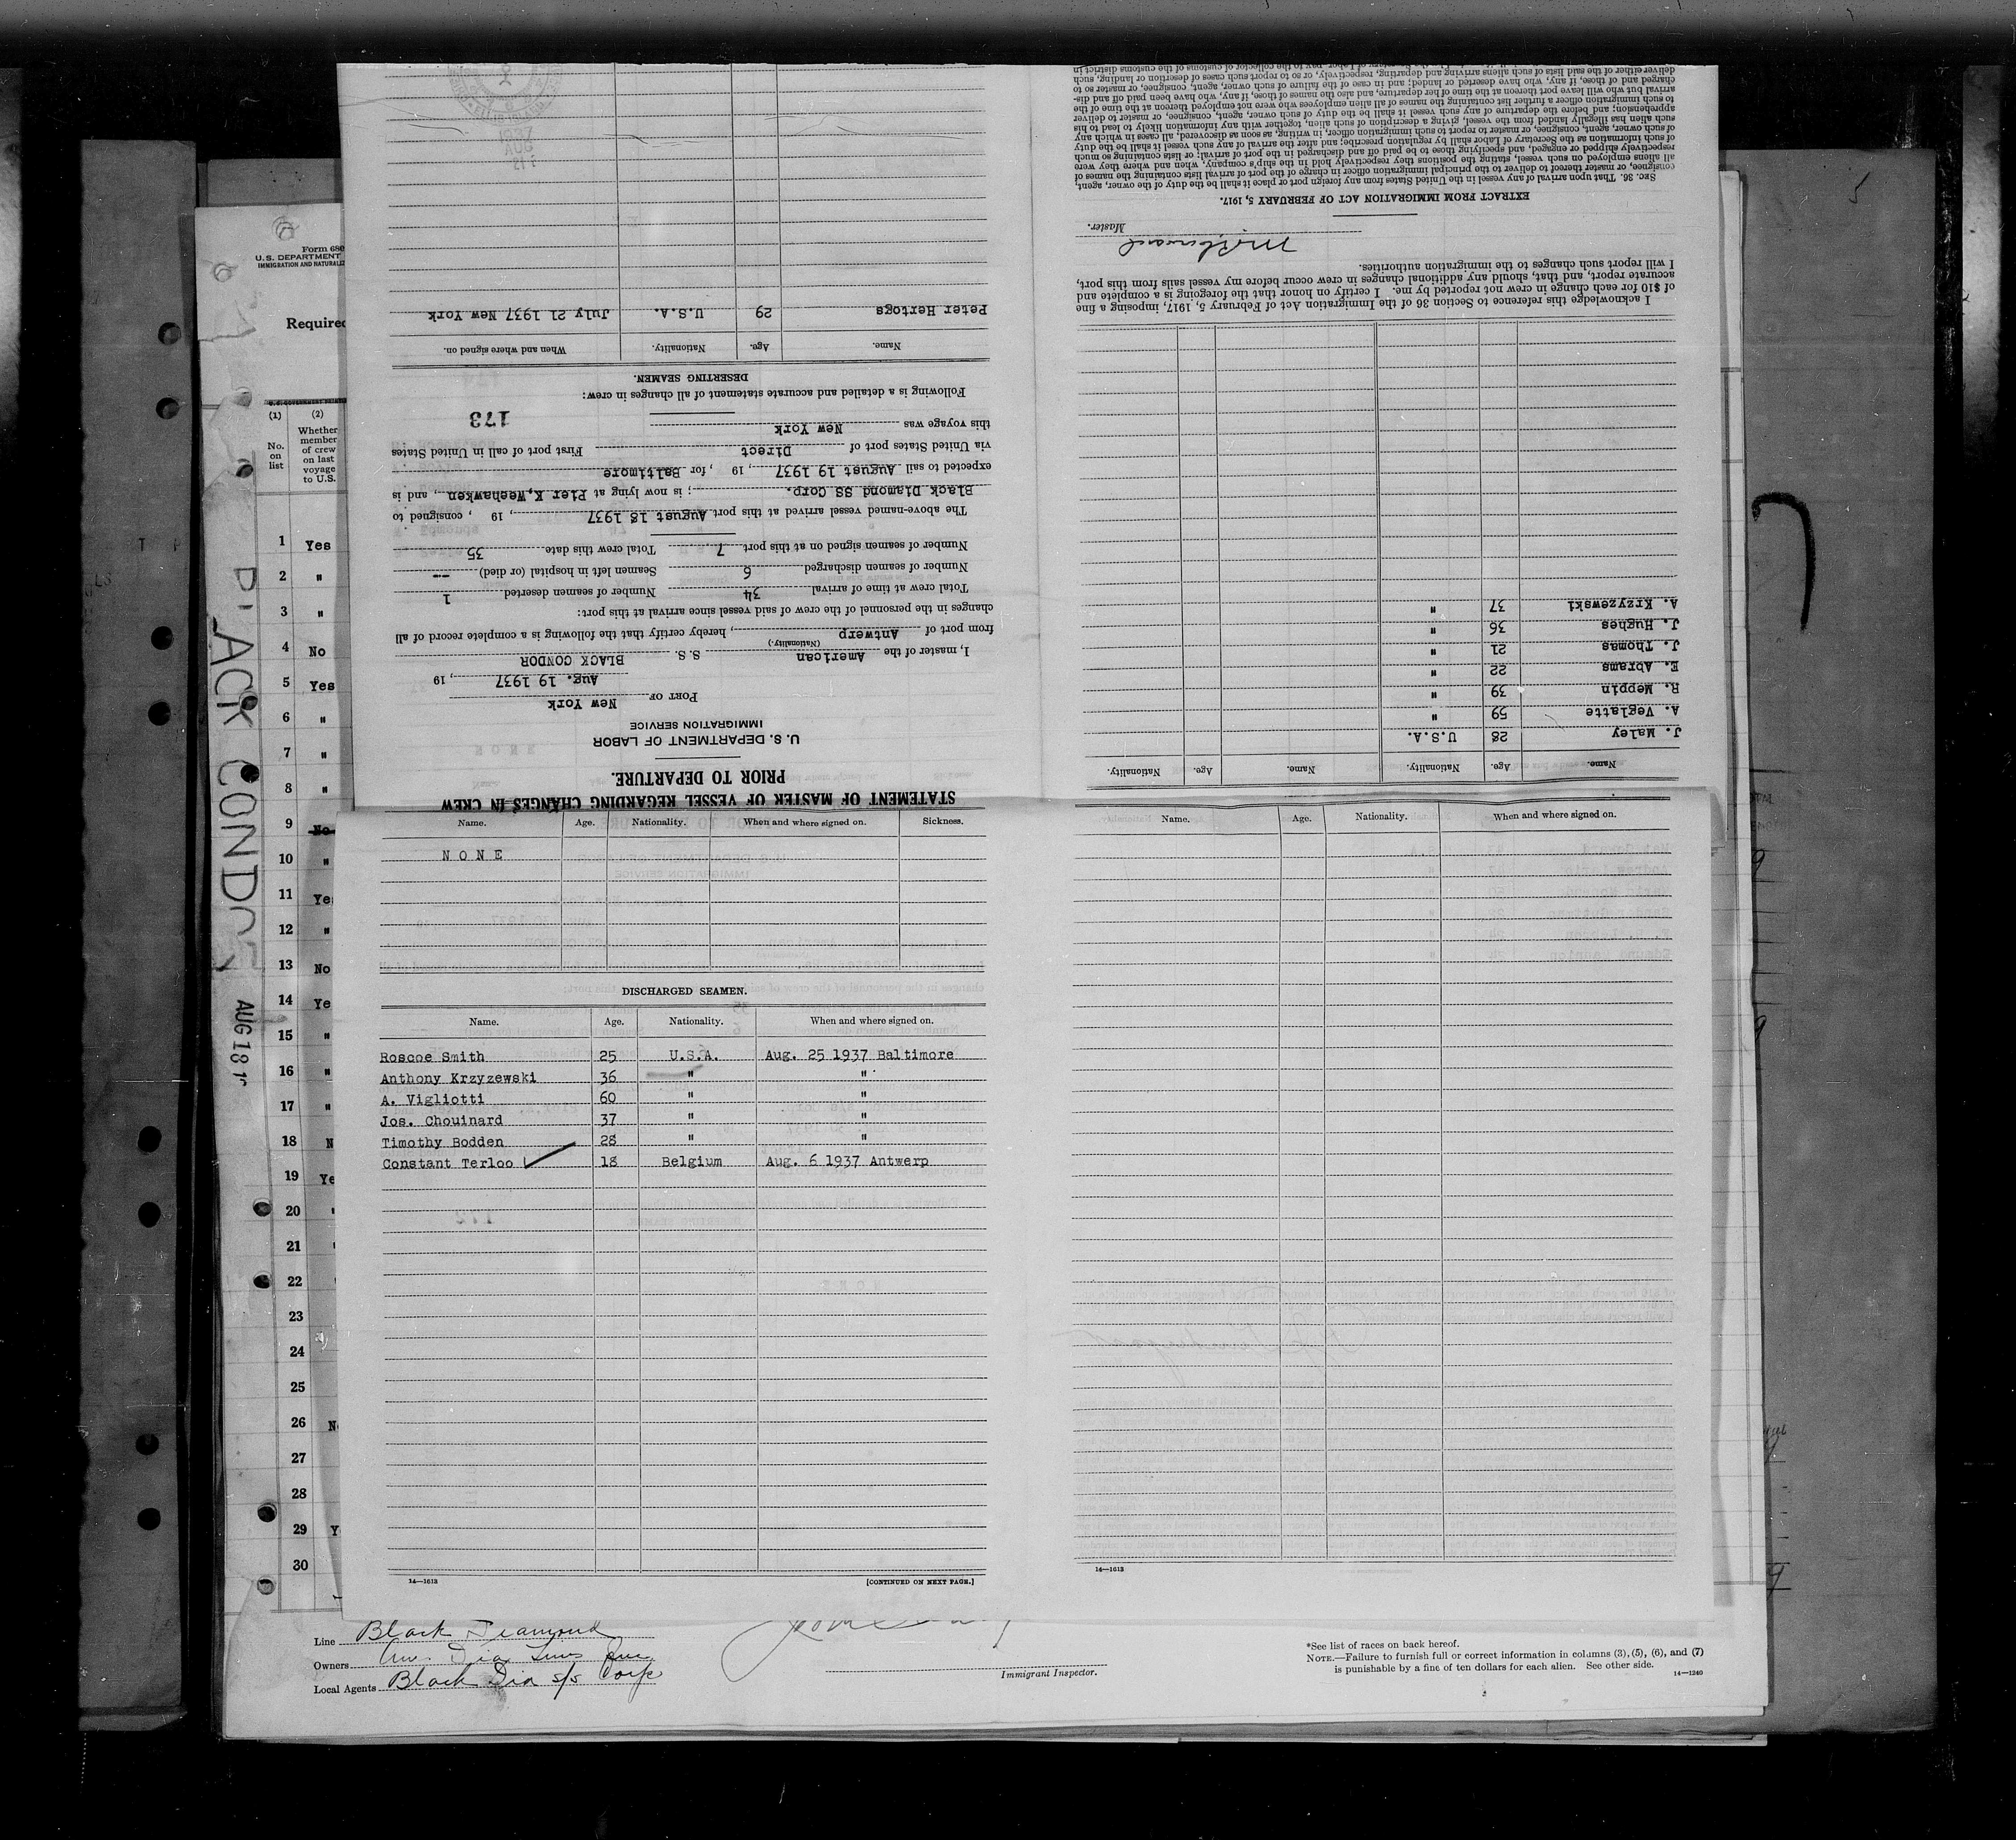 Form 680
U.S. DEPARTMENT
IMMIGRATION AND NATURALIZ
Required
(1) (2)
No. on list
Whether member of crew on last voyage to U.S.
1 Yes
2 "
3 "
4 No
5 Yes
6 "
7 "
8 "
9 No
10 "
11 Yes
12 "
13 No
14 Ye
15 "
16 "
17 "
18 N
19 Ye
20 "
21
22
23
24
25
26 N
27
28
29 Y
30
BLACK CONDOR AUG 18
STATEMENT OF MASTER OF VESSEL REGARDING CHANGES IN CREW
PRIOR TO DEPARTURE.
U. S. DEPARTMENT OF LABOR
IMMIGRATION SERVICE
PORT OF New York
Aug. 19 1937, 19
I, master of the American S. S. BLACK CONDOR
(Nationality.)
from port of Antwerp, hereby certify that the following is a complete record of all
changes in the personnel of the crew of said vessel since arrival at this port:
Total crew at time of arrival 34 Number of seamen deserted 1
Number of seamen discharged 6 Seamen left in hospital (or died) --
Number of seamen signed on at this port 7 Total crew this date 35
The above-named vessel arrived at this port August 18 1937, 19 , consigned to
Black Diamond SS Corp. ; is now lying at Pier K, Weehawken, and is
expected to sail August 19 1937, 19 , for Baltimore
via United States port of Direct First port of call in United States
this voyage was New York
173
Following is a detailed and accurate statement of all changes in crew:
DESERTING SEAMEN.
Name. Age. Nationality. When and where signed on.
Peter Hertogs 29 U.S.A. July 21 1937 New York
Name. Age. Nationality. Name. Age. Nationality.
J. Maley 28 U.S.A.
A. Veglatte 59 "
R. Meppin 39 "
E. Abrams 22 "
J. Thomas 21 "
J. Hughes 36 "
A. Krzyzewski 37 "
I acknowledge this reference to Section 36 of the Immigration Act of February 5, 1917, imposing a fine
of $10 for each change in crew not reported by me. I certify on honor that the foregoing is a complete and
accurate report, and that, should any additional changes in crew occur before my vessel sails from this port,
I will report such changes to the immigration authorities.
Master.
EXTRACT FROM IMMIGRATION ACT OF FEBRUARY 5, 1917.
SEC. 36. That upon arrival of any vessel in the United States from any foreign port or place it shall be the duty of the owner, agent,
consignee, or master thereof to deliver to the principal immigration officer in charge of the port of arrival lists containing the names of
all aliens employed on such vessel, stating the positions they respectively hold in the ship's company, when and where they were
respectively shipped or engaged, and specifying those to be paid off and discharged in the port of arrival; or lists containing so much
of such information as the Secretary of Labor shall by regulation prescribe; and after the arrival of any such vessel it shall be the duty
of such owner, agent, consignee, or master to report to such immigration officer, in writing, as soon as discovered, all cases in which any
such alien has illegally landed from the vessel, giving a description of such alien, together with any information likely to lead to his
apprehension; and before the departure of any such vessel it shall be the duty of such owner, agent, consignee, or master to deliver
to such immigration officer a further list containing the names of all alien employees who were not employed thereon at the time of the
arrival but who will leave port thereon at the time of her departure, and also the names of those, if any, who have been paid off and dis-
charged and of those, if any, who have deserted or landed; and in case of the failure of such owner, agent, consignee, or master so to
deliver either of the said lists of such aliens arriving and departing, respectively, or so to report such cases of desertion or landing, such
Name. Age. Nationality. When and where signed on. Sickness.
NONE
DISCHARGED SEAMEN.
Name. Age. Nationality. When and where signed on.
Roscoe Smith 25 U.S.A. Aug. 25 1937 Baltimore
Anthony Krzyzewski 36 " "
A. Vigliotti 60 " "
Jos. Chouinard 37 " "
Timothy Bodden 28 " "
Constant Terloo 18 Belgium Aug. 6 1937 Antwerp
14—1613 [CONTINUED ON NEXT PAGE.]
Name. Age. Nationality. When and where signed on.
14—1613
Line Black Diamond
Owners Am. Dia Lines Inc
Local Agents Black Dia s/s Corp
Immigrant Inspector.
*See list of races on back hereof.
NOTE.—Failure to furnish full or correct information in columns (3), (5), (6), and (7)
is punishable by a fine of ten dollars for each alien. See other side.
14—1240